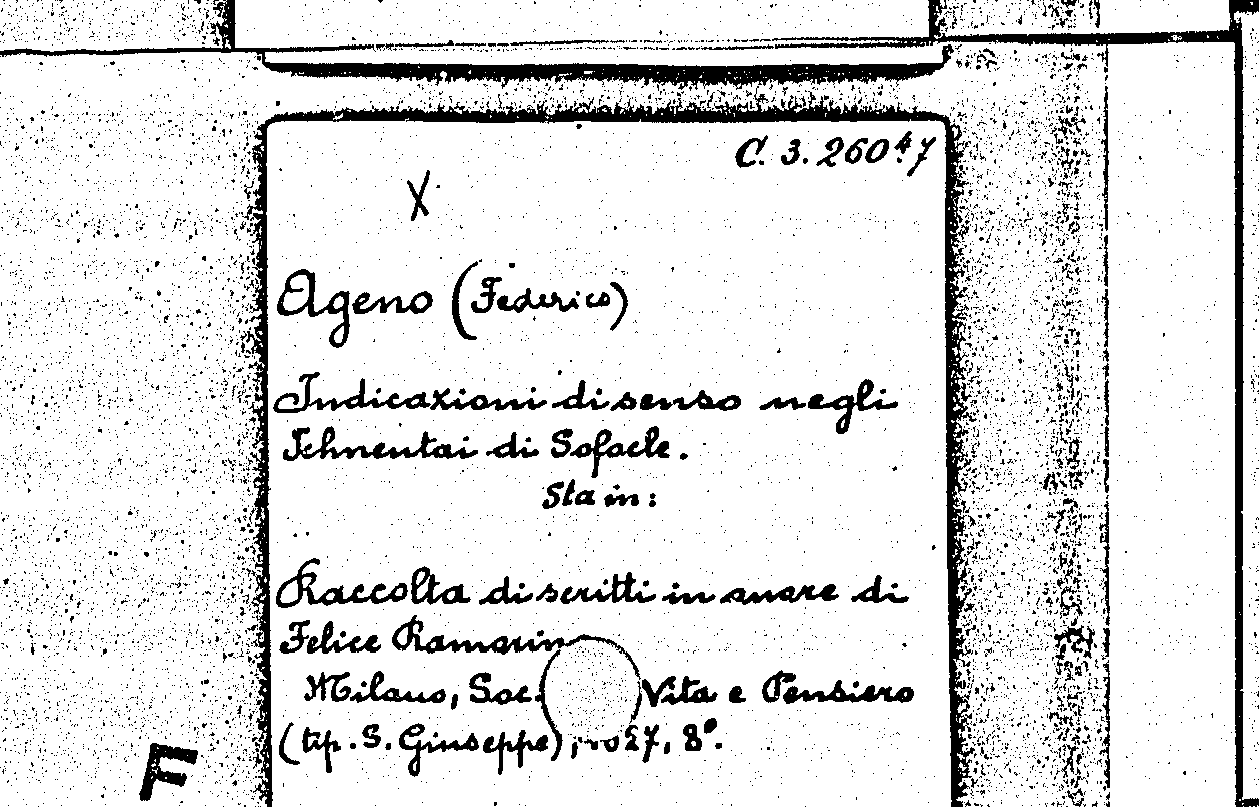 C. 3. 260⁴.7
X
Ageno (Federico)
Indicazioni di senso negli
Ichneutai di Sofocle.
Sta in:
Raccolta di scritti in onore di
Felice Ramorin
Milano, Soc. Vita e Pensiero
(tip. S. Giuseppe), 1927, 8º.
F